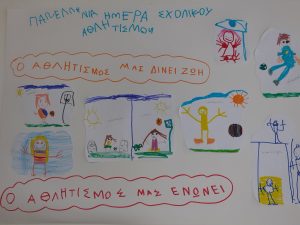 ΠΑΝΕΛΛΗΝΙΑ ΗΜΕΡΑ ΣΧΟΛΙΚΟΥ
ΑΘΛΗΤΙΣΜΟΥ
Ο ΑΘΛΗΤΙΣΜΟΣ ΜΑΣ ΔΙΝΕΙ ΖΩΗ
Ο ΑΘΛΗΤΙΣΜΟΣ ΜΑΣ ΕΝΩΝΕΙ